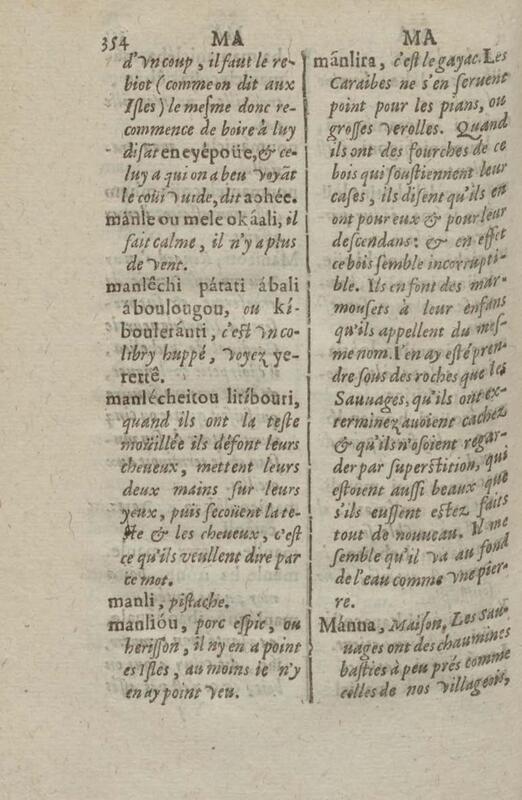 354 MA MA
d'vn coup, il faut le re-
biot (comme on dit aux
Isles) le mesme donc re-
commence de boire à luy
disãt eneyépoüe, & ce-
luy a qui on a beu voyãt
le coüi vuide, dit aohée.
mánle ou mele okáali, il
fait calme, il n'y a plus
de vent.
manlêchi pátati ábali
áboulougou, ou kí-
bouleránti, c'est vn co-
libry huppé, voyez ye-
rettê.
manlécheitou litíbouri,
quand ils ont la teste
moüillée ils défont leurs
cheueux, mettent leurs
deux mains sur leurs
yeux, puis secoüent la te-
ste & les cheueux, c'est
ce qu'ils veullent dire par
ce mot.
manli, pistache.
manlióu, porc espic, ou
herisson, il ny en a point
es Isles, au moins ie n'y
en ay point veu.
mánlira, c'est le gayac. Les
Caraibes ne s'en seruent
point pour les pians, ou
grosses verolles. Quand
ils ont des fourches de ce
bois qui soustiennent leur
cases, ils disent qu'ils en
ont pour eux & pour leur
descendans: & en effet
ce bois semble incorrupti-
ble. Ils en font des mar-
mousets à leur enfans
qu'ils appellent du mes-
me nom. I'en ay esté pren-
dre sous des roches que les
Sauuages, qu'ils ont ex-
terminez auoient cachez
& qu'ils n'osoient regar-
der par superstition, qui
estoient aussi beaux que
s'ils eussent estez faits
tout de nouueau. Il me
semble qu'il va au fond
de l'eau comme vne pier-
re.
Mánna, Maison, Les Sau-
uages ont des chaumines
basties à peu prés comme
celles de nos villageois,